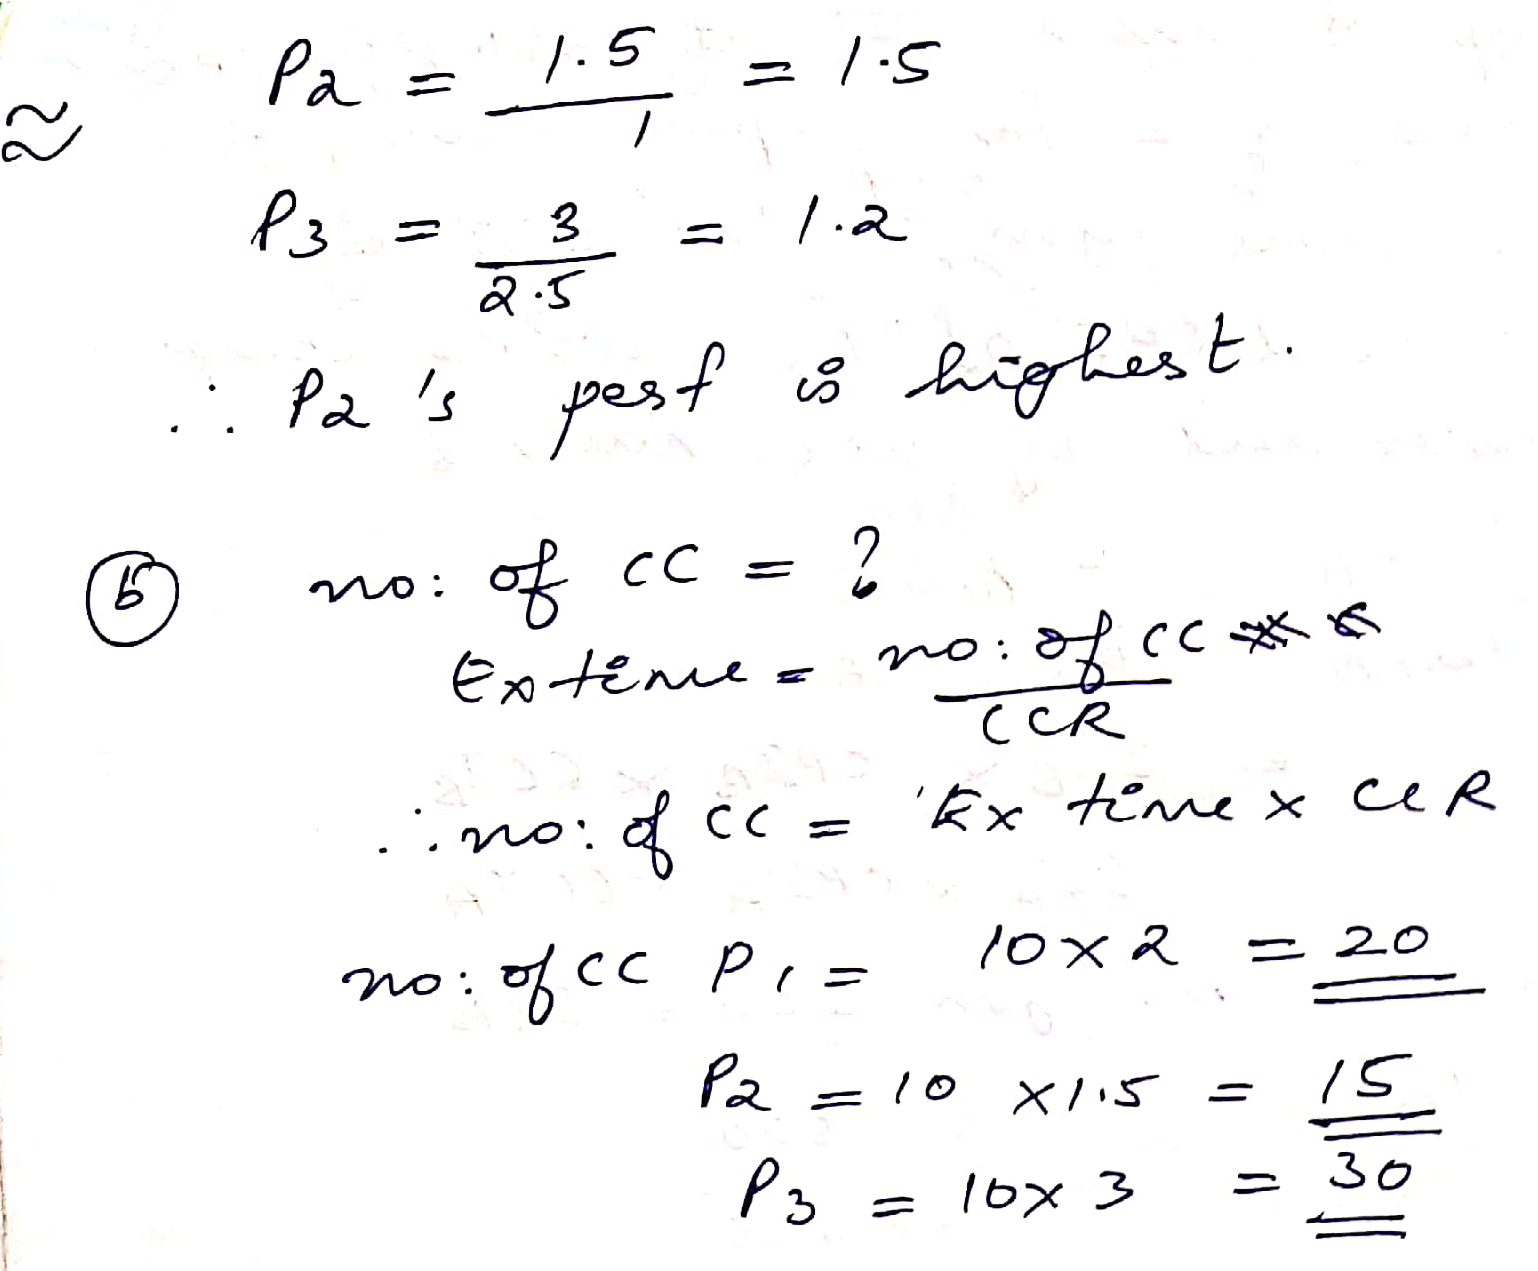 ≈ P2 = 1.5 / 1 = 1.5
P3 = 3 / 2.5 = 1.2
∴ P2's perf is highest.
(b) no: of CC = ?
Ex time = no: of CC / CCR
∴ no: of CC = Ex time x CCR
no: of CC P1 = 10 x 2 = 20
P2 = 10 x 1.5 = 15
P3 = 10 x 3 = 30